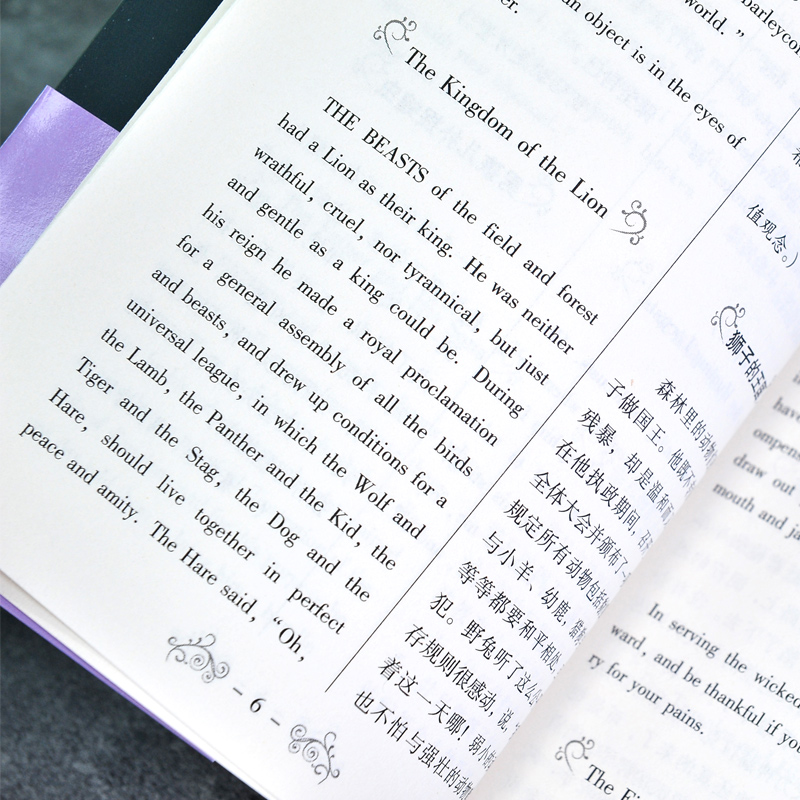 barleycorn
world. ”
an object is in the eyes of
er.
The Kingdom of the Lion
THE BEASTS of the field and forest
had a Lion as their king. He was neither
wrathful, cruel, nor tyrannical, but just
and gentle as a king could be. During
his reign he made a royal proclamation
for a general assembly of all the birds
and beasts, and drew up conditions for a
universal league, in which the Wolf and
the Lamb, the Panther and the Kid, the
Tiger and the Stag, the Dog and the
Hare, should live together in perfect
peace and amity. The Hare said, “Oh,
- 6 -
值观念。）
狮子的王国
森林里的动物
子做国王。他既不
残暴，却是温和而
在他执政期间，召
全体大会并颁布了一
规定所有动物包括
与小羊、幼鹿，猎狗
等等都要和平相处
犯。野兔听了这么
存规则很感动，说
着这一天哪！弱小的
也不怕与强壮的动物
have
ompens
draw out
mouth and ja
In serving the wicked
ward, and be thankful if you
ry for your pains.
The